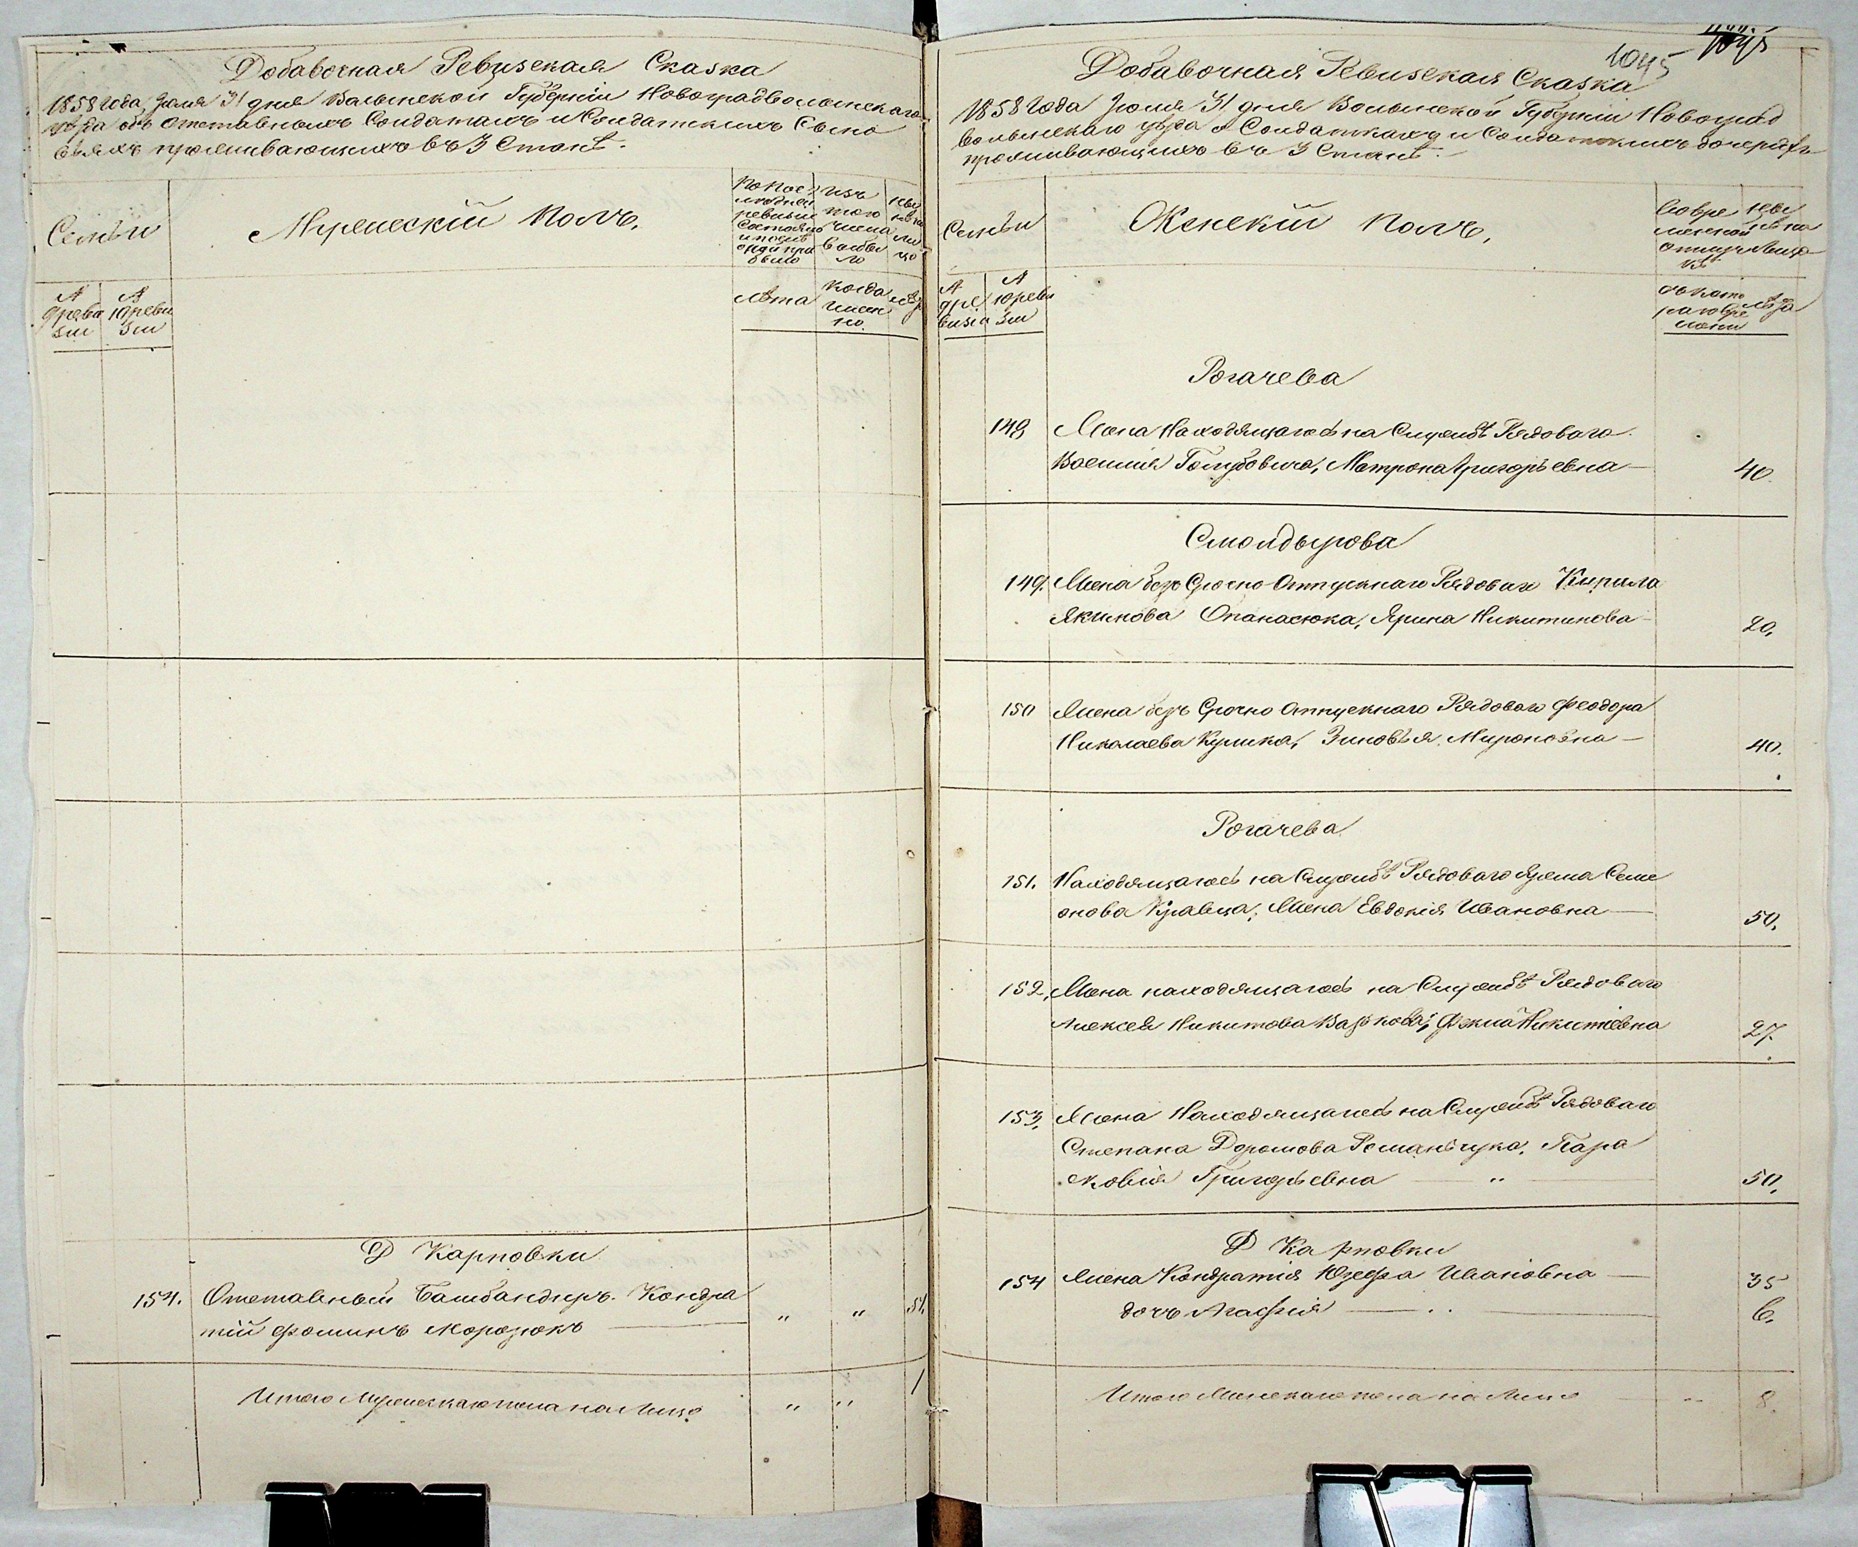 Добавочная Ревизская Сказка
1858 года, Июля 31 дня Волынской Губерніи Новоградволынскаго
уѣзда объ отставныхъ Солдатахъ и Солдатскихъ Сыно
вьяхъ проживающихъ въ 3 Станѣ.
Семьи
Мужескій Полъ,
По пос
лѣдней
ревизіи
состояло
и послѣ
оной при
было
изъ
того
числа
выбы
ло
ны
нѣ на
ли
цо
№
9 реви
зіи
№
10 реви
зіи
лѣта
когда
имен
но
лѣ
Д Карповки
154. Отставный Бомбандиръ Кондра
тій Фоминъ Морозюкъ " " 51.
Итого Мужескаго пола на Лицо " " 1
1045
Добавочная Ревизская Сказка
1858 Года Июля 31 дня Волынской Губерніи Новоград
волынскаго уѣзда о Солдаткахъ и Солдатскихъ дочеряхъ
проживающихъ въ 3 Станѣ.
Семьи
Женскій Полъ,
Во вре
менной
отлуч
кѣ
ны
нѣ на
лицо
№
9 ре
визіи
№
10 реви
зіи
съ кото
раго вре
мени
лѣта
Рогачева
148 Жена Находящагося на Службѣ Рядоваго
Василія Голубовича, Матрона Григорьевна — 40.
Смолдырова
149. Жена безъ Срочно Отпускнаго Рядоваго Кирила
Якимова Опанасюка, Ярина Никитинова 20.
150 Жена безъ Срочно Отпускнаго Рядоваго Феодора
Николаева Кулика, Зиновья Мироновна — 40.
Рогачева
151. Находящагося на Службѣ Рядоваго Семе
онова Кравца, Жена Евдокія Ивановна — 50.
152. Жена находящагося на Службѣ Рядоваго
Алексея Никитова Никитовна 27.
153. Жена Находящагося на Службѣ Рядоваго
Степана Дорошова Романчука, Пара
сковія Григорьевна — " — 50.
Д Карповки
154 Жена Кондратія Юзефа Ивановна — 35
дочь Агафія — 6.
Итого Женскаго пола на Лицо 8.